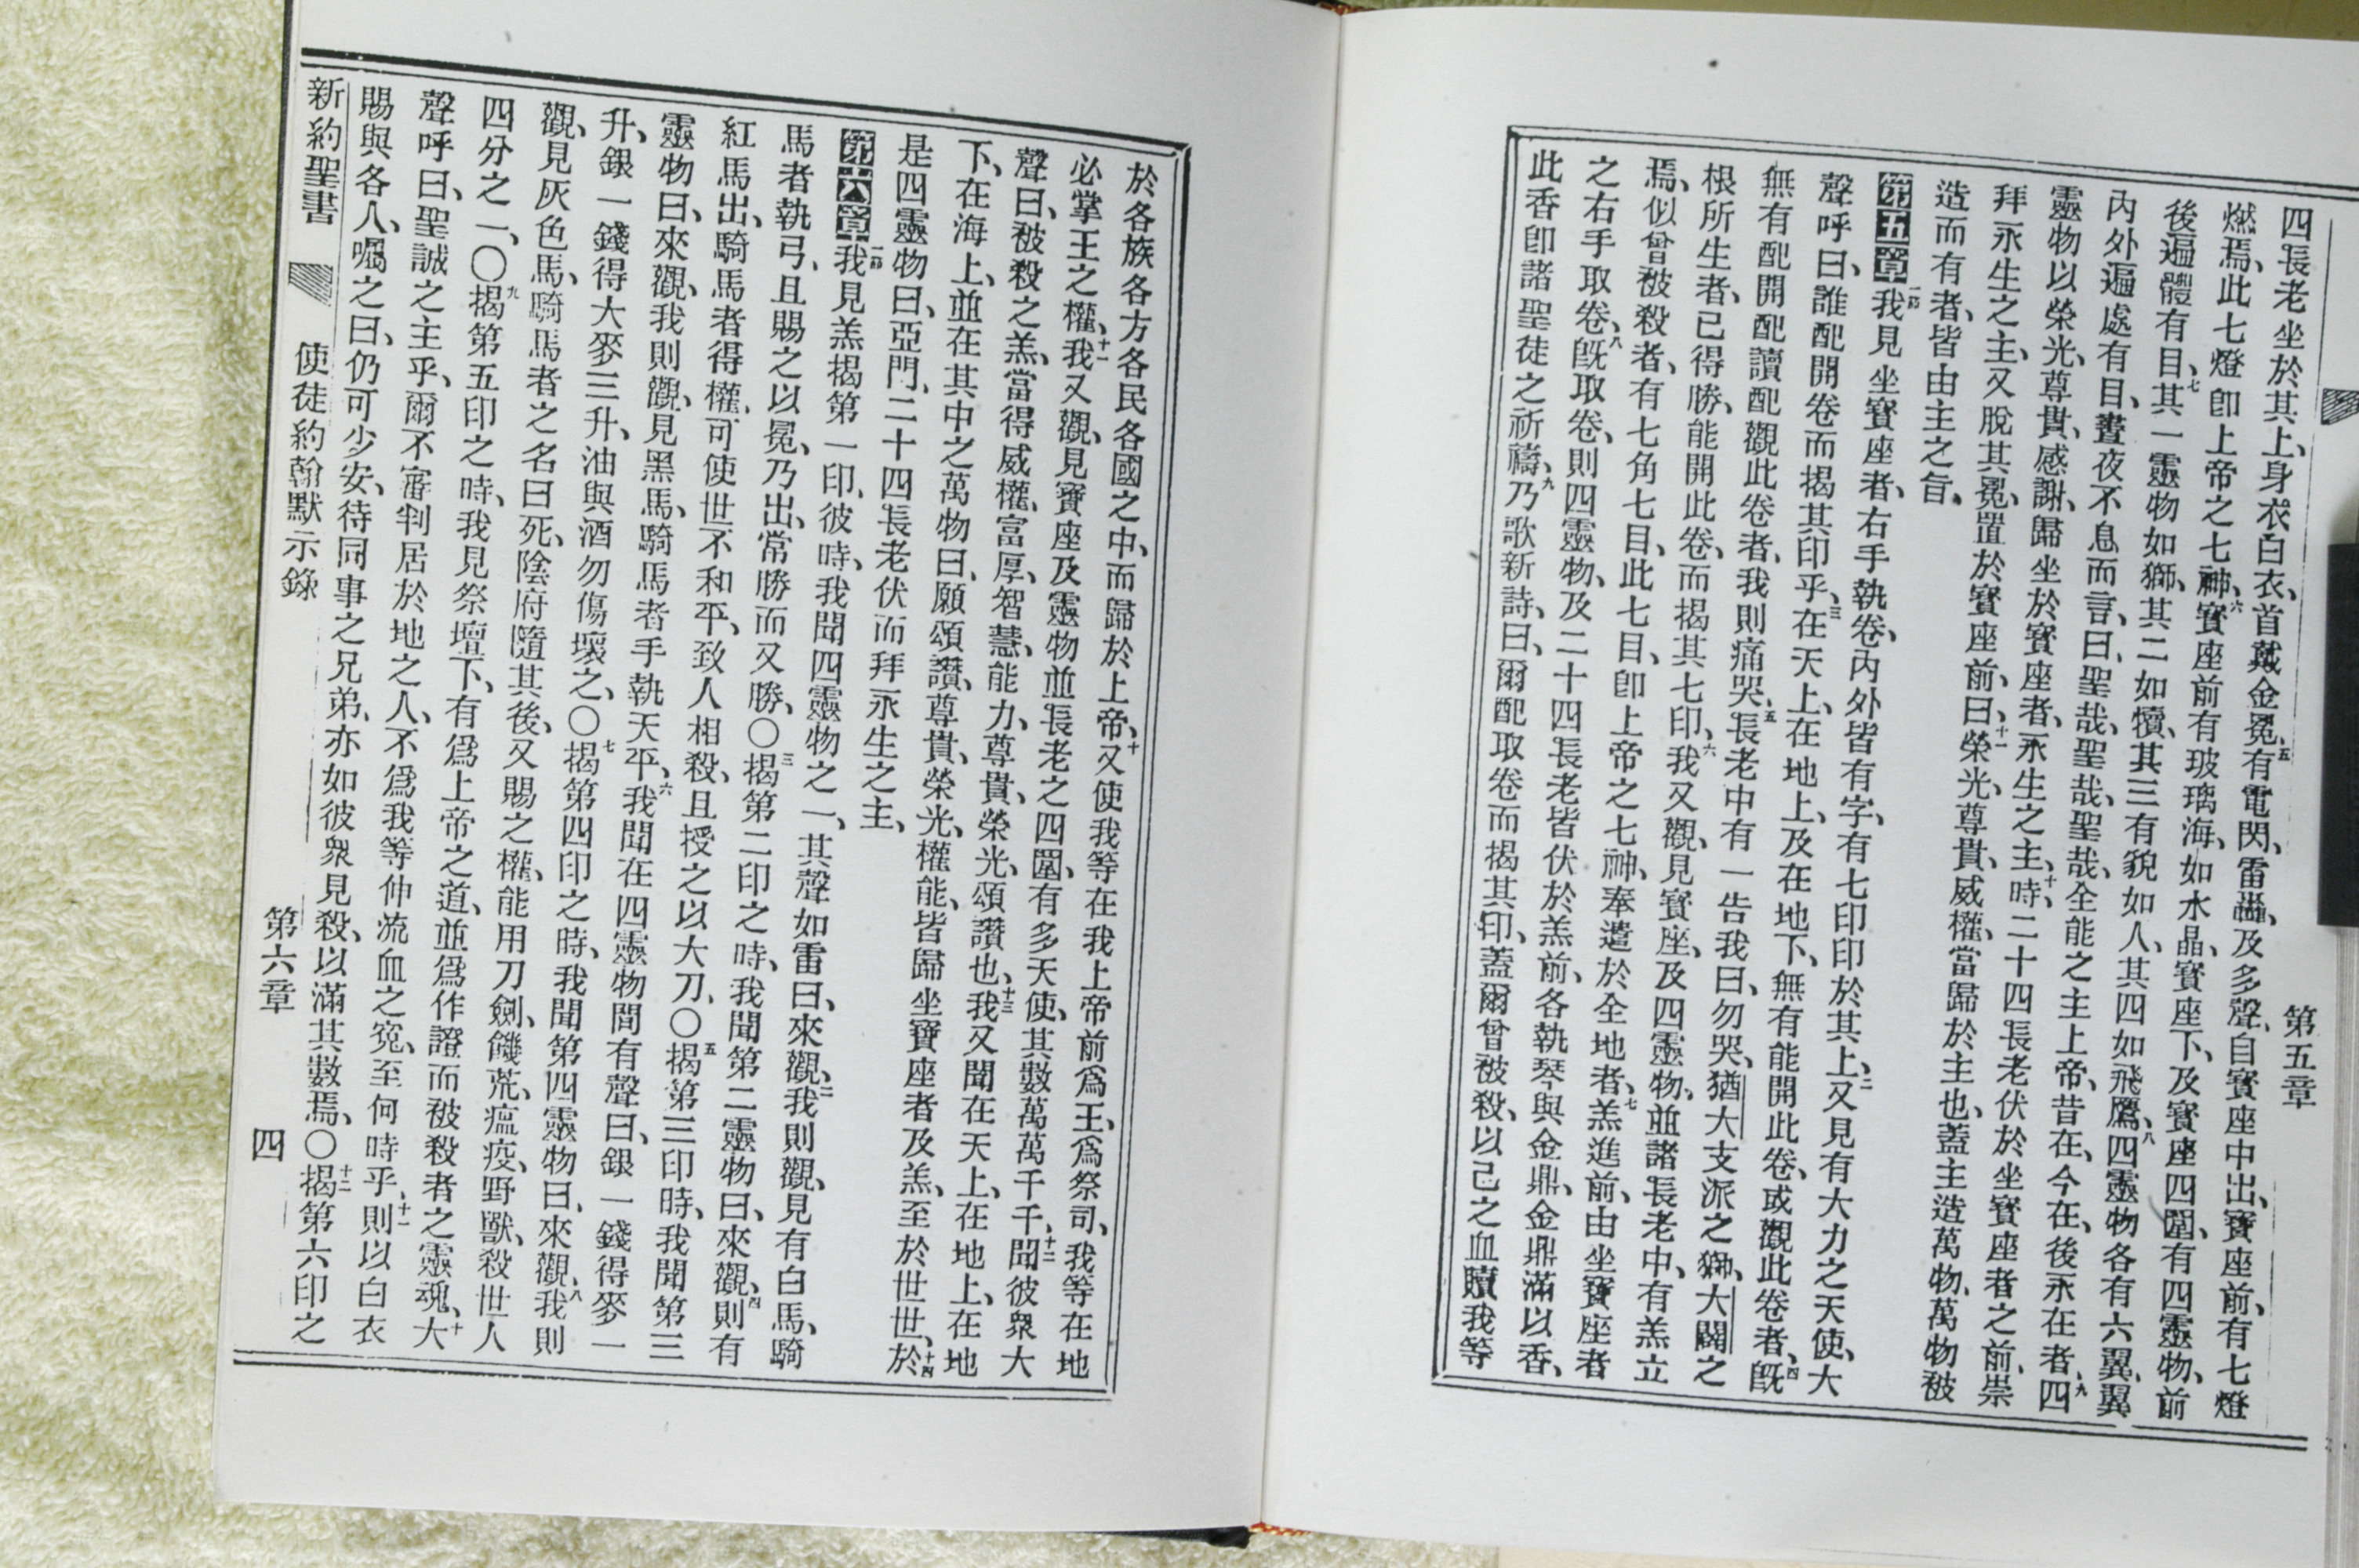 第五章
四長老坐於其上、身衣白衣、首戴金冕、五有電閃、雷轟、及多聲、自寶座中出、寶座前、有七燈
燃焉、此七燈卽上帝之七神、六寶座前有玻璃海、如水晶、寶座下、及寶座四圍、有四靈物、前
後遍體有目、七其一靈物如獅、其二如犢、其三有貌如人、其四如飛鷹、八四靈物各有六翼、翼
內外遍處有目、晝夜不息而言、曰、聖哉、聖哉、聖哉、全能之主上帝、昔在、今在、後永在者、九四
靈物以榮光、尊貴、感謝、歸坐於寶座者、永生之主、十時、二十四長老伏於坐寶座者之前、崇
拜永生之主、又脫其冕、置於寶座前、曰、十一榮光、尊貴、威權、當歸於主也、蓋主造萬物、萬物被
造而有者、皆由主之旨、
第五章一節我見坐寶座者、右手執卷、內外皆有字、有七印印於其上、二又見有大力之天使、大
聲呼曰、誰配開卷而揭其印乎、三在天上、在地上、及在地下、無有能開此卷、或觀此卷者、四旣
無有配開配讀配觀此卷者、我則痛哭、五長老中有一告我曰、勿哭、猶大支派之獅、大闢之
根所生者、已得勝、能開此卷、而揭其七印、六我又觀、見寶座、及四靈物、並諸長老中、有羔立
焉、似曾被殺者、有七角七目、此七目、卽上帝之七神、奉遣於全地者、七羔進前、由坐寶座者
之右手取卷、八旣取卷、則四靈物、及二十四長老皆伏於羔前、各執琴與金鼎、金鼎滿以香、
此香卽諸聖徒之祈禱、九乃歌新詩、曰、爾配取卷而揭其印、蓋爾曾被殺、以己之血贖我等
於各族各方各民各國之中、而歸於上帝、十又使我等在我上帝前爲王、爲祭司、我等在地
必掌王之權、十一我又觀、見寶座及靈物並長老之四圍、有多天使、其數萬萬千千、十二聞彼衆大
聲曰、被殺之羔、當得威權、富厚、智慧、能力、尊貴、榮光、頌讚也、十三我又聞在天上、在地上、在地
下、在海上、並在其中之萬物曰、願頌讚、尊貴、榮光、權能、皆歸坐寶座者及羔、至於世世、十四於
是四靈物曰、亞門、二十四長老伏而拜永生之主、
第六章一節我見羔揭第一印、彼時、我聞四靈物之一、其聲如雷曰、來觀、二我則觀、見有白馬、騎
馬者執弓、且賜之以冕、乃出、常勝而又勝、〇三揭第二印之時、我聞第二靈物曰、來觀、四則有
紅馬出、騎馬者得權、可使世不和平、致人相殺、且授之以大刀、〇五揭第三印時、我聞第三
靈物曰、來觀、我則觀、見黑馬、騎馬者手執天平、六我聞在四靈物間有聲曰、銀一錢得麥一
升、銀一錢得大麥三升、油與酒勿傷壞之、〇七揭第四印之時、我聞第四靈物曰、來觀、八我則
觀、見灰色馬、騎馬者之名曰死、陰府隨其後、又賜之權、能用刀劍、饑荒、瘟疫、野獸、殺世人
四分之一、〇九揭第五印之時、我見祭壇下、有爲上帝之道、並爲作證而被殺者之靈魂、十大
聲呼曰、聖誠之主乎、爾不審判居於地之人、不爲我等伸流血之寃、至何時乎、十一則以白衣
賜與各人、囑之曰、仍可少安、待同事之兄弟、亦如彼衆見殺、以滿其數焉、〇十二揭第六印之
新約聖書 使徒約翰默示錄 第六章 四